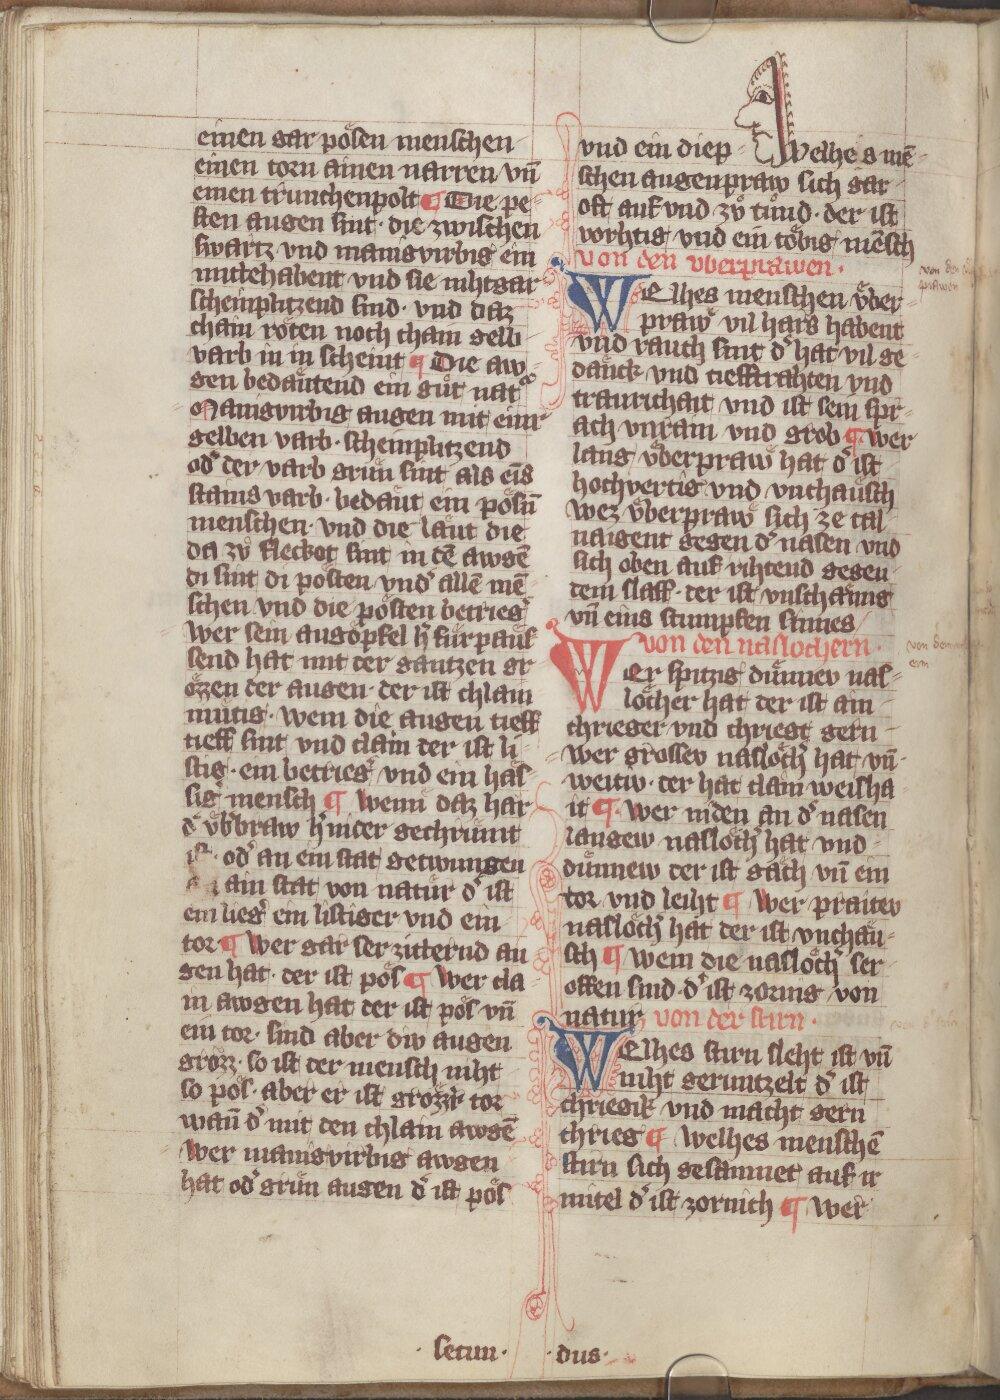 einen gar pósen menschen
einen torn ainen narren vn̄
einen trunchenpolt ¶ Die pe-
sten augen sint · die zwischen
swartz vnd manigvirbig ein
mittehabent · vnd sie nihtgar
scheinplitzend sind · vnd daz
chain roten noch chain gelb
varb in in scheint ¶ Die aw-
gen bedaͤutend ein guͤt nat᷑
Manigvirbig augen mit einr
gelben varb · scheinplitzend
od᷑ der varb gruͤn sint als eīs
stains varb · bedaͤut ein poͤsn̄
menschen · vnd die laͤut die
da zuͦ fleckot sint in dē awgē
di sint di poͤsten vnd᷑ allē mē-
schen vnd die poͤsten betrieg᷑
Wer sein augoͤpfel h᷑ fuͤr pauſ-
send hat mit der gantzen gr-
oͤzzen der augen · der ist chlain
muͤtig · wem die augen tieff
tieff sint vnd clain der ist li-
stig · ein betrieg᷑ vnd ein haͤs-
sig᷑ mensch ¶ wenn daz har
d᷑ vb᷑braw h᷑inder gechrumt
ist · od᷑ an ein stat getwungen
ain stat von natur d᷑ ist
ein lieg᷑ ein listiger vnd ein
tor ¶ wer gar ser zitternd au-
gen hat · der ist poͤs ¶ wer cla-
in awgen hat der ist poͤs vn̄
ein tor · sind aber div augen
grozz · so ist der mensch niht
so poͤs · aber er ist groͤzzer tor
wan̄ d᷑ mit den chlain awgē
Wer manigvirbig awgen
hat od᷑ gruͤn augen d᷑ ist poͤs
vnd ein diep · Welhes mē-
schen augenpraw sich gar
oft auf vnd zuͦ tuͦnd · der ist
vorhtig vnd ein toͤbig mēsch
von den vberprawen ·
WElhes menschen vͤber-
praw vil hars habent
vnd rauch sint d᷑ hat vil ge-
daͤnck vnd tiefftrahten vnd
traurichait vnd ist sein spr-
ach vnrain vnd grob ¶ wer
lang vͤberpraw hat d᷑ ist
hochvertig vnd vnchaͤusch
wez vͤberpraw sich ze tal
naigent gegen d᷑ nasen vnd
sich oben auf rihtend gegen
dem slaff · der ist vnschaͤmig
vn̄ eins stumpfen sinnes
von den naslochern ·
WEr spitzig duͤnnev nas-
loͤcher hat der ist ain
chrieger vnd chriegt gern
Wer grossev nasloͤch᷑ hat vn̄
weitiv · der hat clain weisha-
it ¶ wer niden an d᷑ nasen
langew nasloͤch᷑ hat vnd
duͤnnew der ist gaͤch vn̄ ein
tor vnd leiht ¶ Wer praitev
nasloͤch᷑ hat der ist vnchaͤu-
sch ¶ wem die nasloͤch᷑ ser
offen sind · d᷑ ist zornig von
natur von der stirn ·
WElhes stirn sleht ist vn̄
niht geruntzelt d᷑ ist
chriegik vnd macht gern
chrieg ¶ welhes menschē
stirn sich gesamnet auf ir
mitel d᷑ ist zornich ¶ wer
secun · dus ·